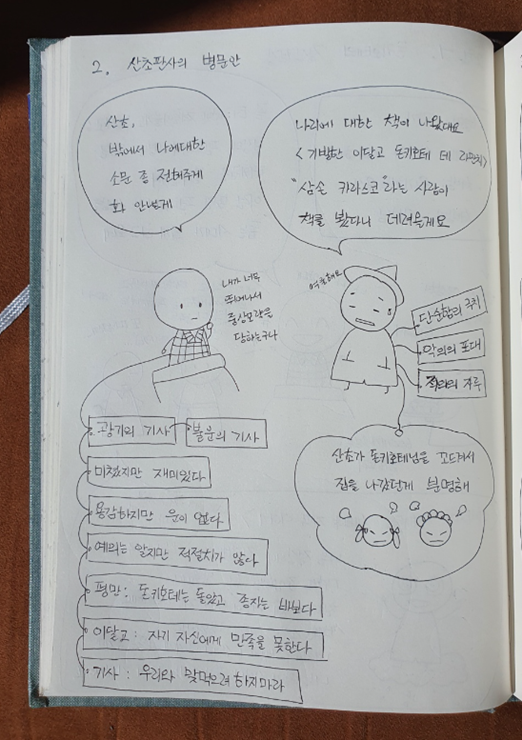 2. 산초판사의 병문안
산초,
밖에서 나에대한
소문 좀 전해주게
화 안낼게
나리에 대한 책이 나왔대요
<기발한 이달고 돈키호테 데 라만차>
"삼손 카라스코"라는 사람이
책을 봤다니 데려올게요
내가 너무
뛰어나서
중상모략을
당하는구나
억울해요
단순함의 쿠키
악의의 포대
자루
광기의 기사
불운의 기사
미쳤지만 재미있다
용감하지만 운이 없다
예의는 알지만 적절치가 않아
평민: 돈키호테는 돌았고 종자는 바보다
이달고: 자기 자신에게 만족을 못한다
기사: 우리와 맞먹으려 하지마라
산초가 돈키호테님을 꼬드겨서
집을 나갔던게 분명해